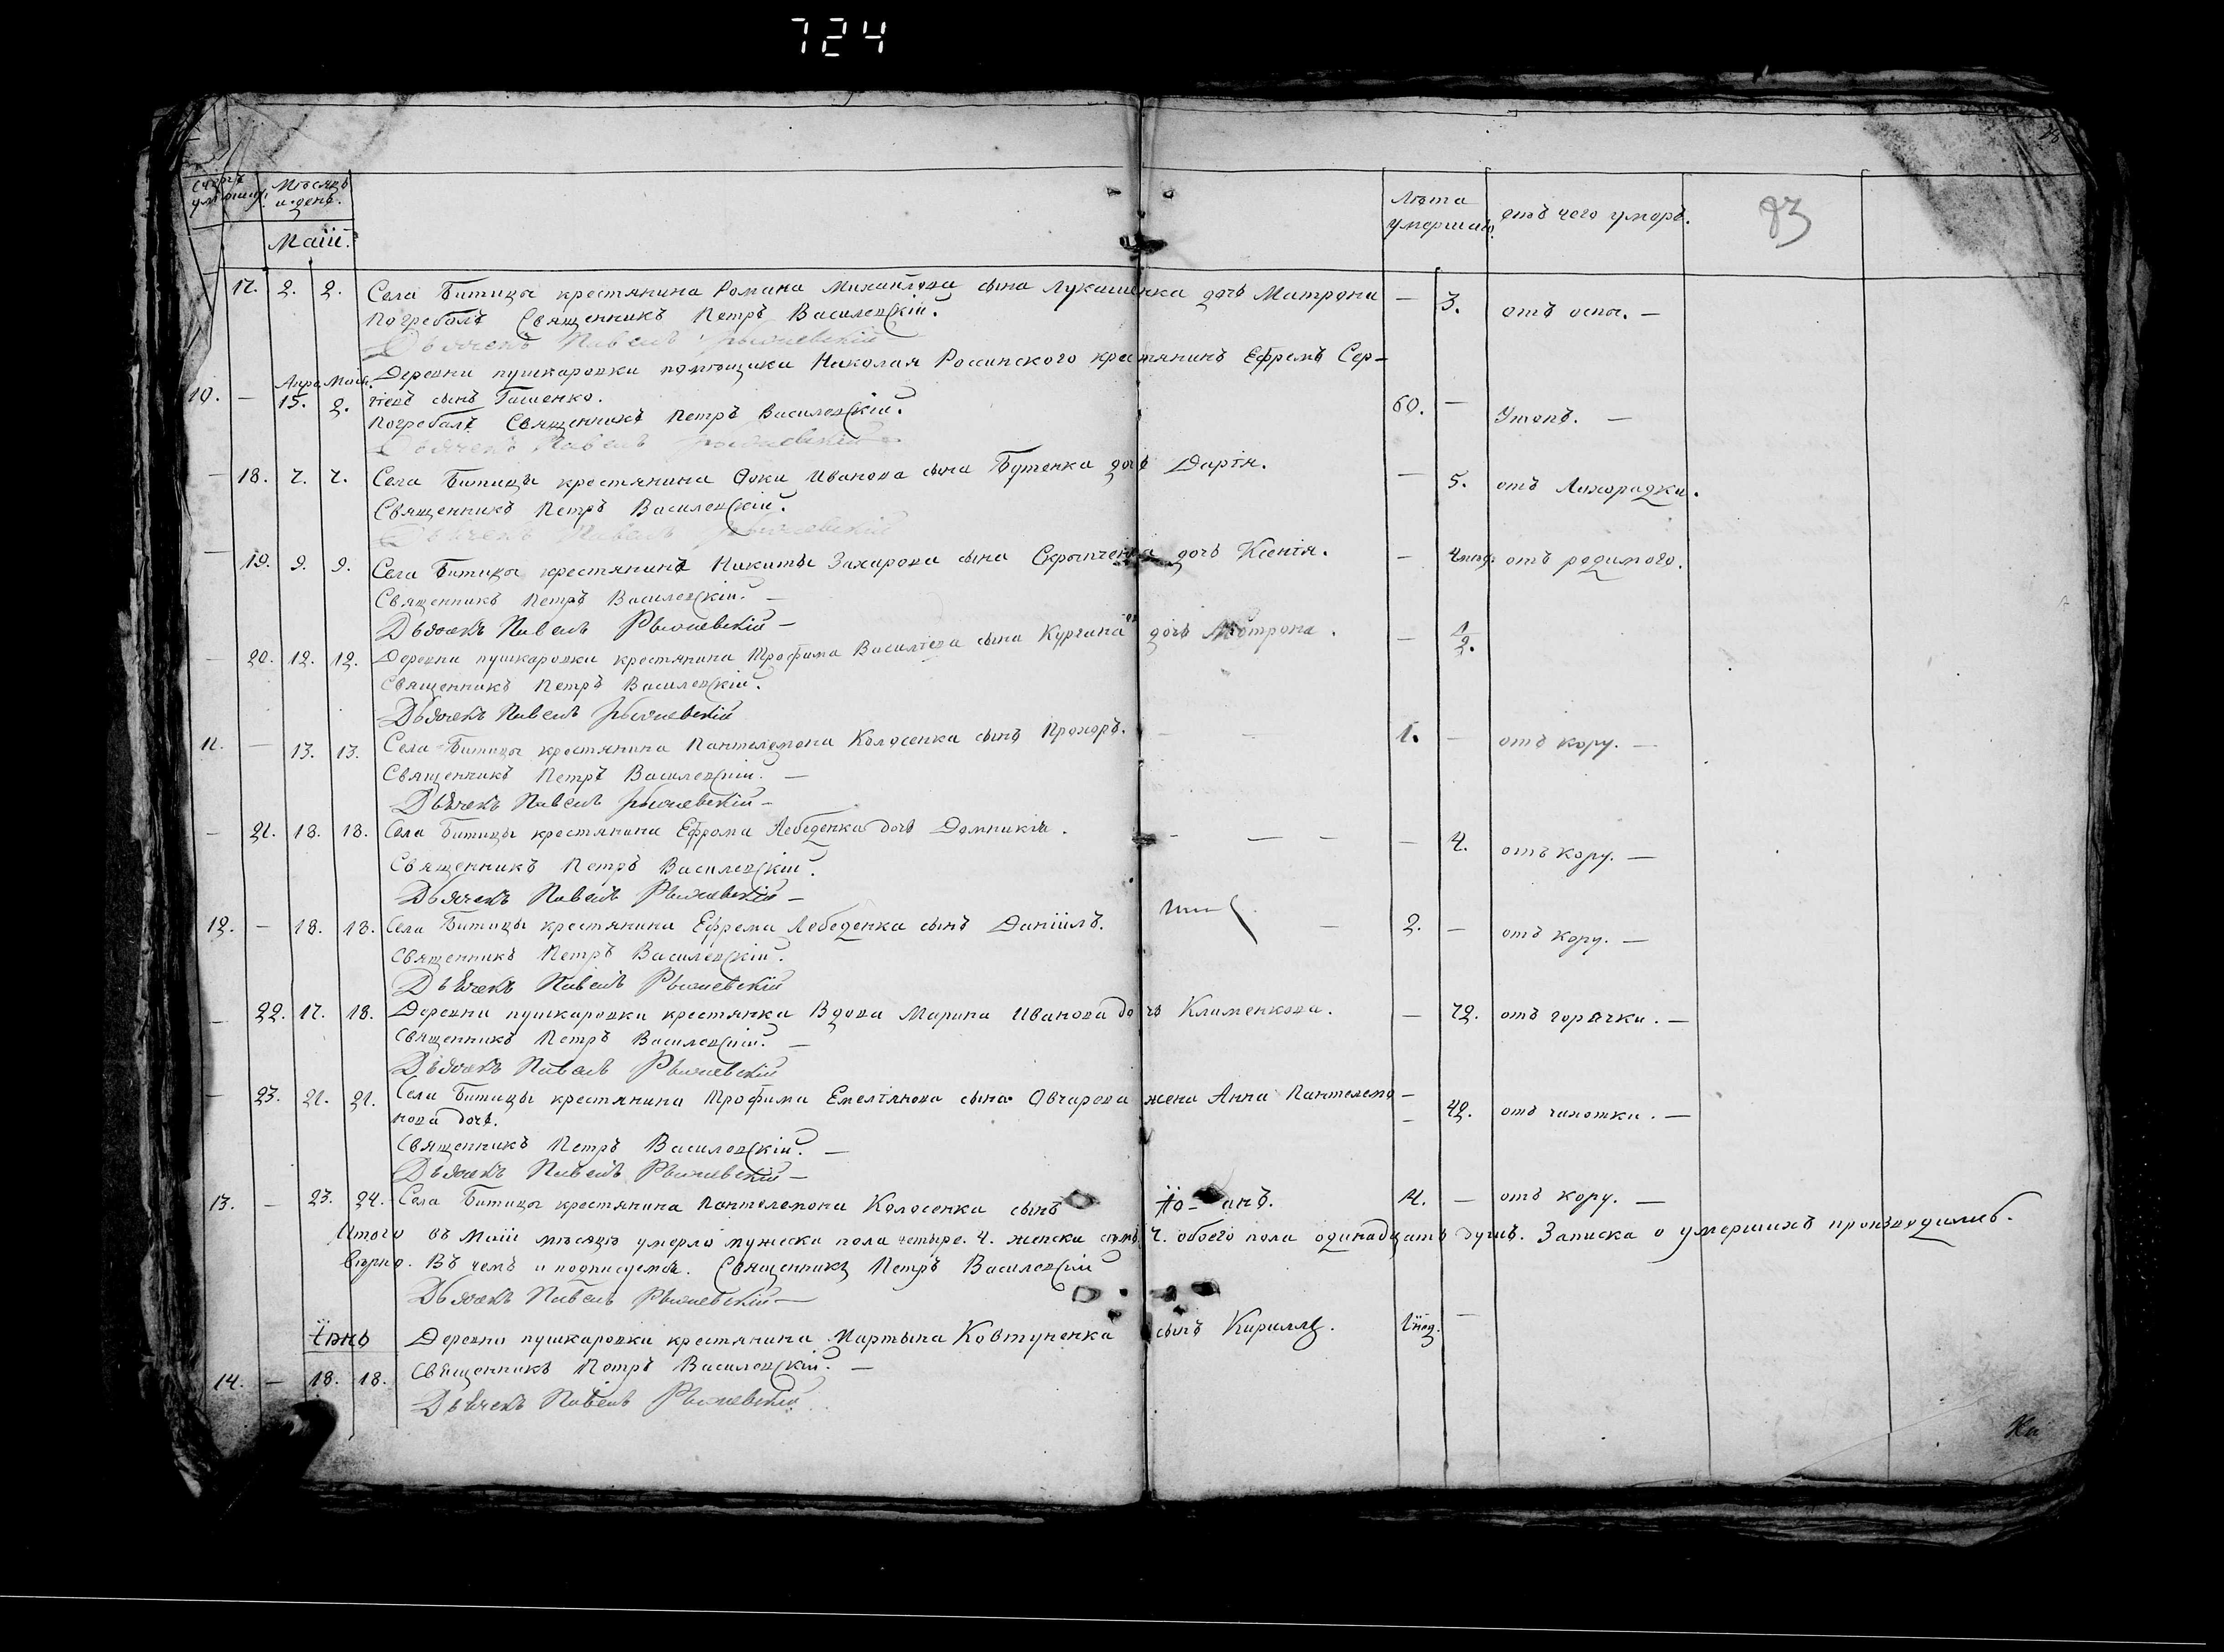 724
Счетъ умершихъ. Мѣсяцъ и день. Лѣта умершаго. отъ чего умеръ. 83
Маій.
17. 2. 2. Села Битицы крестянина Романа Михайлова сына Лукашенка дочь Матрона — 3. отъ оспы. —
Погребалъ Священникъ Петръ Василевскій.
Дьячекъ Павелъ
Деревни пушкаровки помѣщика Николая Россинского крестянинъ Ефремъ Сер-
10. — Апре. 15. Маія. 2. гіевъ сынъ 60. — Утопъ. —
Погребалъ Священникъ Петръ Василевскій.
Дьячекъ Павелъ
— 18. 7. 7. Села Битицы крестянина Фоки Иванова сына Бутенка дочь Дарія. — 5. отъ Лихорадки.
Священникъ Петръ Василевскій.
Дьячекъ Павелъ
— 19. 9. 9. Села Битицы крестянина Никиты Захарова сына Скрыпченка дочь Ксенія. — отъ родимого.
Священникъ Петръ Василевскій. —
Дьячекъ Павелъ —
— 20. 12. 12. Деревни пушкаровки крестянина Трофима Василіева сына дочь Мотрона. — 1/2.
Священникъ Петръ Василевскій.
Дьячекъ Павелъ
11. — 13. 13. Села Битицы крестянина Пантелемона Колосенка сынъ Прохоръ. — — 1. — отъ кору. —
Священникъ Петръ Василевскій. —
Дьячекъ Павелъ —
— 21. 18. 18. Села Битицы крестянина Ефрема Лебеденка дочь Домникія. — — — — 4. отъ кору. —
Священникъ Петръ Василевскій.
Дьячекъ Павелъ —
12. — 18. 18. Села Битицы крестянина Ефрема Лебеденка сынъ Даніилъ. — 2. — отъ кору. —
Священникъ Петръ Василевскій.
Дьячекъ Павелъ
— 22. 17. 18. Деревни пушкаровки крестянка Вдова Марина Иванова дочь Клименкова. — 72. отъ горячки. —
Священникъ Петръ Василевскій. —
Дьячекъ Павелъ
— 23. 21. 21. Села Битицы крестянина Трофима Емеліянова сына Овчарева жена Анна Пантелемо-
нова дочь. — 42. отъ чахотки. —
Священникъ Петръ Василевскій. —
Дьячекъ Павелъ —
13. — 23. 24. Села Битицы крестянина Пантелемона Колосенка сынъ — отъ кору. —
Итого въ Маіи мѣсяцѣ умерло мужеска пола четыре. 4. женска семь 7. обоего пола одинадцать душъ. Записка о умершихъ производилась
вѣрно. Въ чемъ и подписуемся. Священникъ Петръ Василевскій
Дьячекъ Павелъ —
Іюнь Деревни пушкаровки крестянина Мартына Ковтуненка сынъ Кириллъ. —
Священникъ Петръ Василевскій. —
14. — 18. 18.
Дьячекъ Павелъ